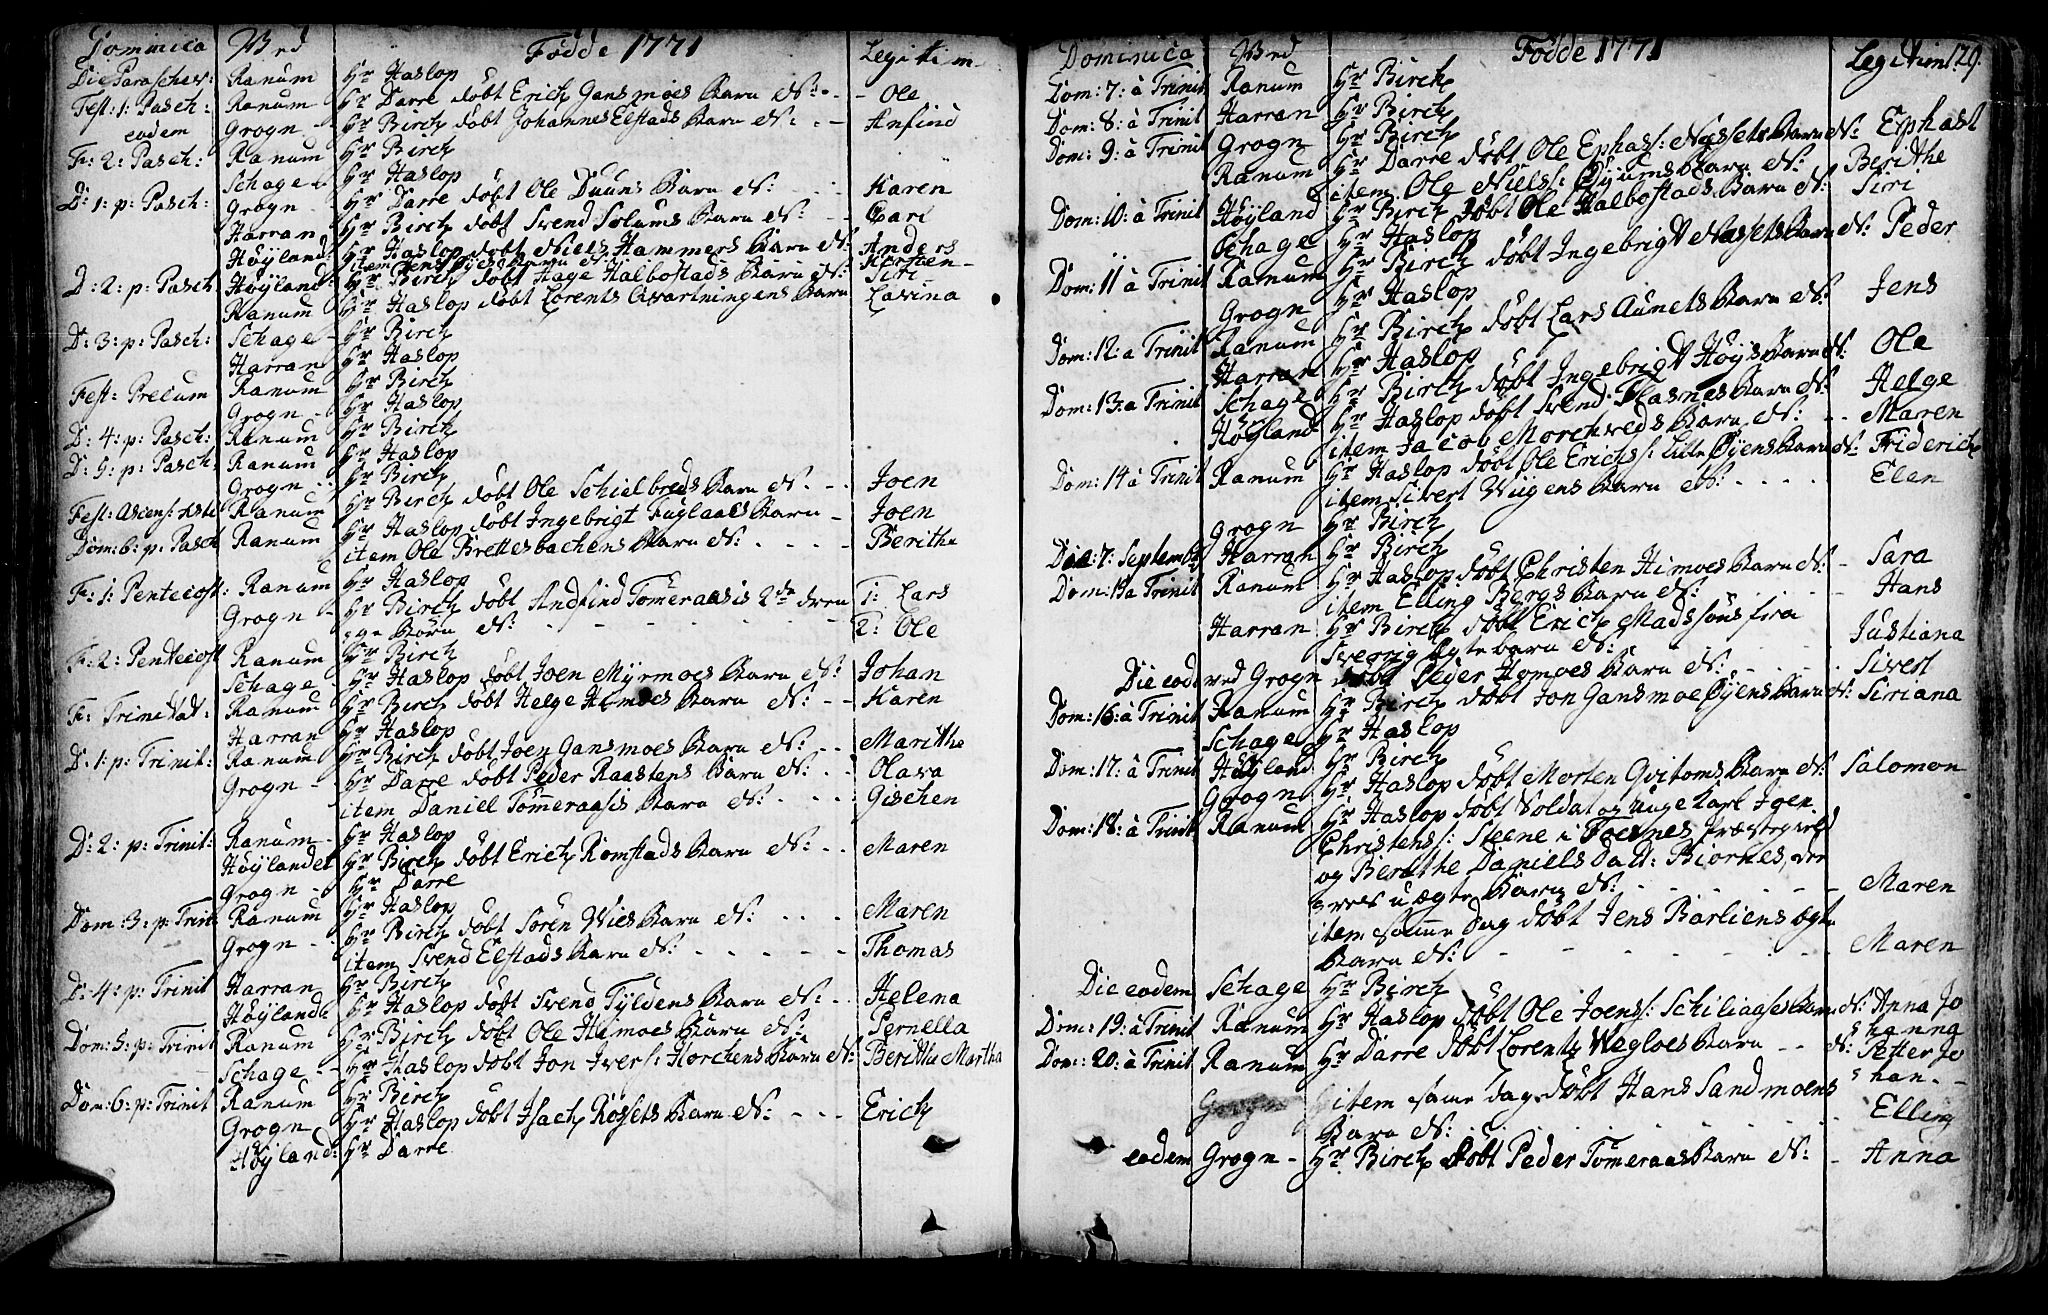 Dominica Ved Fødde 1771 Legitim
Die Parascher: Ranum Hr Haslop
Fest: 1: Pasch: Ranum Hr Darre døbt Erich Gansmoes Barn N: Ole
eodem Grogn Hr Birch døbt Johannes Elstads Barn N: Anfind
F: 2: Pasch: Ranum Hr Birch
Schage Hr Haslop
D: 1: p: Pasch: Grogn Hr Darre døbt Ole Duuns Barn N: Karen
Harran Hr Birch døbt Svend Solums Barn N: Carl
Høyland: Hr Haslop døbt Niels Hammers Barn N: Anders
item Jens Barn N:
D: 2: p: Pasch Høyland: Hr Birch døbt Hage Halbostads Barn N: Siri
Ranum Hr Haslop døbt Lorents Qvartningens Barn Lavina
D: 3: p: Pasch: Schage Hr Birch
Harran Hr Haslop
Fest: Precum Ranum Hr Birch
Grogn Hr Haslop
D: 4: p: Pasch: Ranum Hr Birch
D: 5: p: Pasch: Ranum Hr Haslop
Grogn Hr Birch
Fest: Ascens: Ranum Hr Birch døbt Ole Schielbreds Barn N. Joen
Dom: 6: p: Pasch Ranum Hr Haslop døbt Ingebrigt Fuglaaes Barn Joen
item Ole Brettesbachens Barn N: Berithe
F: 1: Pentecost: Ranum Hr Haslop
Grogn Hr Birch døbt Andfind Tømeraasis 2de dren 1: Lars
ge Børn N: 2: Ole
F: 2: Pentecost Ranum Hr Birch
Schage Hr Haslop døbt Joen Myrmoes Barn N: Johan
F: Trinitat: Ranum Hr Birch døbt Helge Himoes Barn N: Karen
Harran Hr Haslop
D: 1: p: Trinit: Ranum Hr Birch døbt Joen Gansmoes Barn N: Marithe
Grogn Hr Darre døbt Peder Raastens Barn N: Olava
item Daniel Tømmeraasis Barn N: Gischen
D: 2: p: Trinit: Ranum Hr Haslop
Høylandet Hr Birch døbt Erich Romstads Barn N: Maren
Grogn Hr Darre
Dom: 3: p: Trinit Ranum Hr Haslop
Grogn Hr Birch døbt Søren Wies Barn N: Maren
item Svend Elstads Barn N: Thomas
D: 4: p: Trinit Harran Hr Birch
Høylande Hr Haslop døbt Svend Tyldens Barn N: Helena
Dom: 5: p: Trinit Ranum Hr Birch døbt Ole Himoes Barn N: Pernella
Schage Hr Haslop døbt Jon Ivers: Horchens Barn N: Berithe Martha
Dom: 6: p: Trinit Ranum Hr Birch
Grogn Hr Haslop døbt Isach Rossets Barn N: Erich
Høyland: Hr Darre
Dominica Ved Fødde 1771 Legitim 129.
Dom: 7: à Trinit Ranum Hr Birch
Dom: 8: à Trinit Harran Hr Birch
Dom: 9: à Trinit Grogn Hr Birch
Ranum Hr Darre døbt Ole Ephas: Næssets Barn N: Ephast
item Ole Niels: Øyums Barn N: Berithe
Dom: 10: à Trinit Høyland Hr Birch døbt Ole Halbostads Barn N: Siri
Schage Hr Haslop
Dom: 11 à Trinit Ranum Hr Birch døbt Ingebrigt Næssets Barn N: Peder
Grogn Hr Haslop
Dom: 12: a Trinit Ranum Hr Birch døbt Lars Aunets Barn N: Jens
Harran Hr Haslop
Dom: 13: à Trinit Schage Hr Birch døbt Ingebrigt Høys Barn N: Ole
Høyland Hr Haslop døbt Svend Flasnes Barn N: Helge
item Jacob Morchveds Barn N: Maren
Dom: 14 à Trinit Ranum Hr Haslop døbt Ole Erichs: Lille Øyens Barn N: Friderich
item Sivert Wiigens Barn N: Elen
Grogn Hr Birch
Die: 7: Septemb: Harran Hr Birch
Dom: 15 à Trinit Ranum Hr Haslop døbt Christen Himoes Barn N: Sara
item Elling Bergs Barn N: Hans
Harran Hr Birch døbt Erich Madssøns fra
Sverrig Ægte barn N: Justiana
Die eod: ved Grogn døbt Peder Homoes Barn N: Sivert
Dom: 16: à Trinit Ranum Hr Birch døbt Jon Gansmoe Øyens Barn N: Siriana
Schage Hr Haslop
Dom: 17: à Trinit Høyland Hr Birch
Grogn Hr Haslop døbt Morten Qvitoms Barn N: Salomon
Dom: 18: à Trinit Ranum Hr Haslop døbt Soldat og unge Karl Igen
Christens: Steene i Foesnes Præstegield
og Berethe Daniels Datt: Biornes, der
eres uægte Barn N: Maren
item samme Dag døbt Jens Barliens ægte
Barn N: Maren
Die eodem Schage Hr Birch
Dom: 19: à Trinit Ranum Hr Haslop døbt Ole Joens: Schiliaases Barn N: Anna Jo
hanna
Dom: 20: à Trinit Ranum Hr Darre døbt Lorentz Wegloes Barn N: Petter Jo
han.
item same dag døbt Hans Sandmoens
Barn N: Elling
eodem Grogn Hr Birch døbt Peder Tømeraas Barn N: Anna